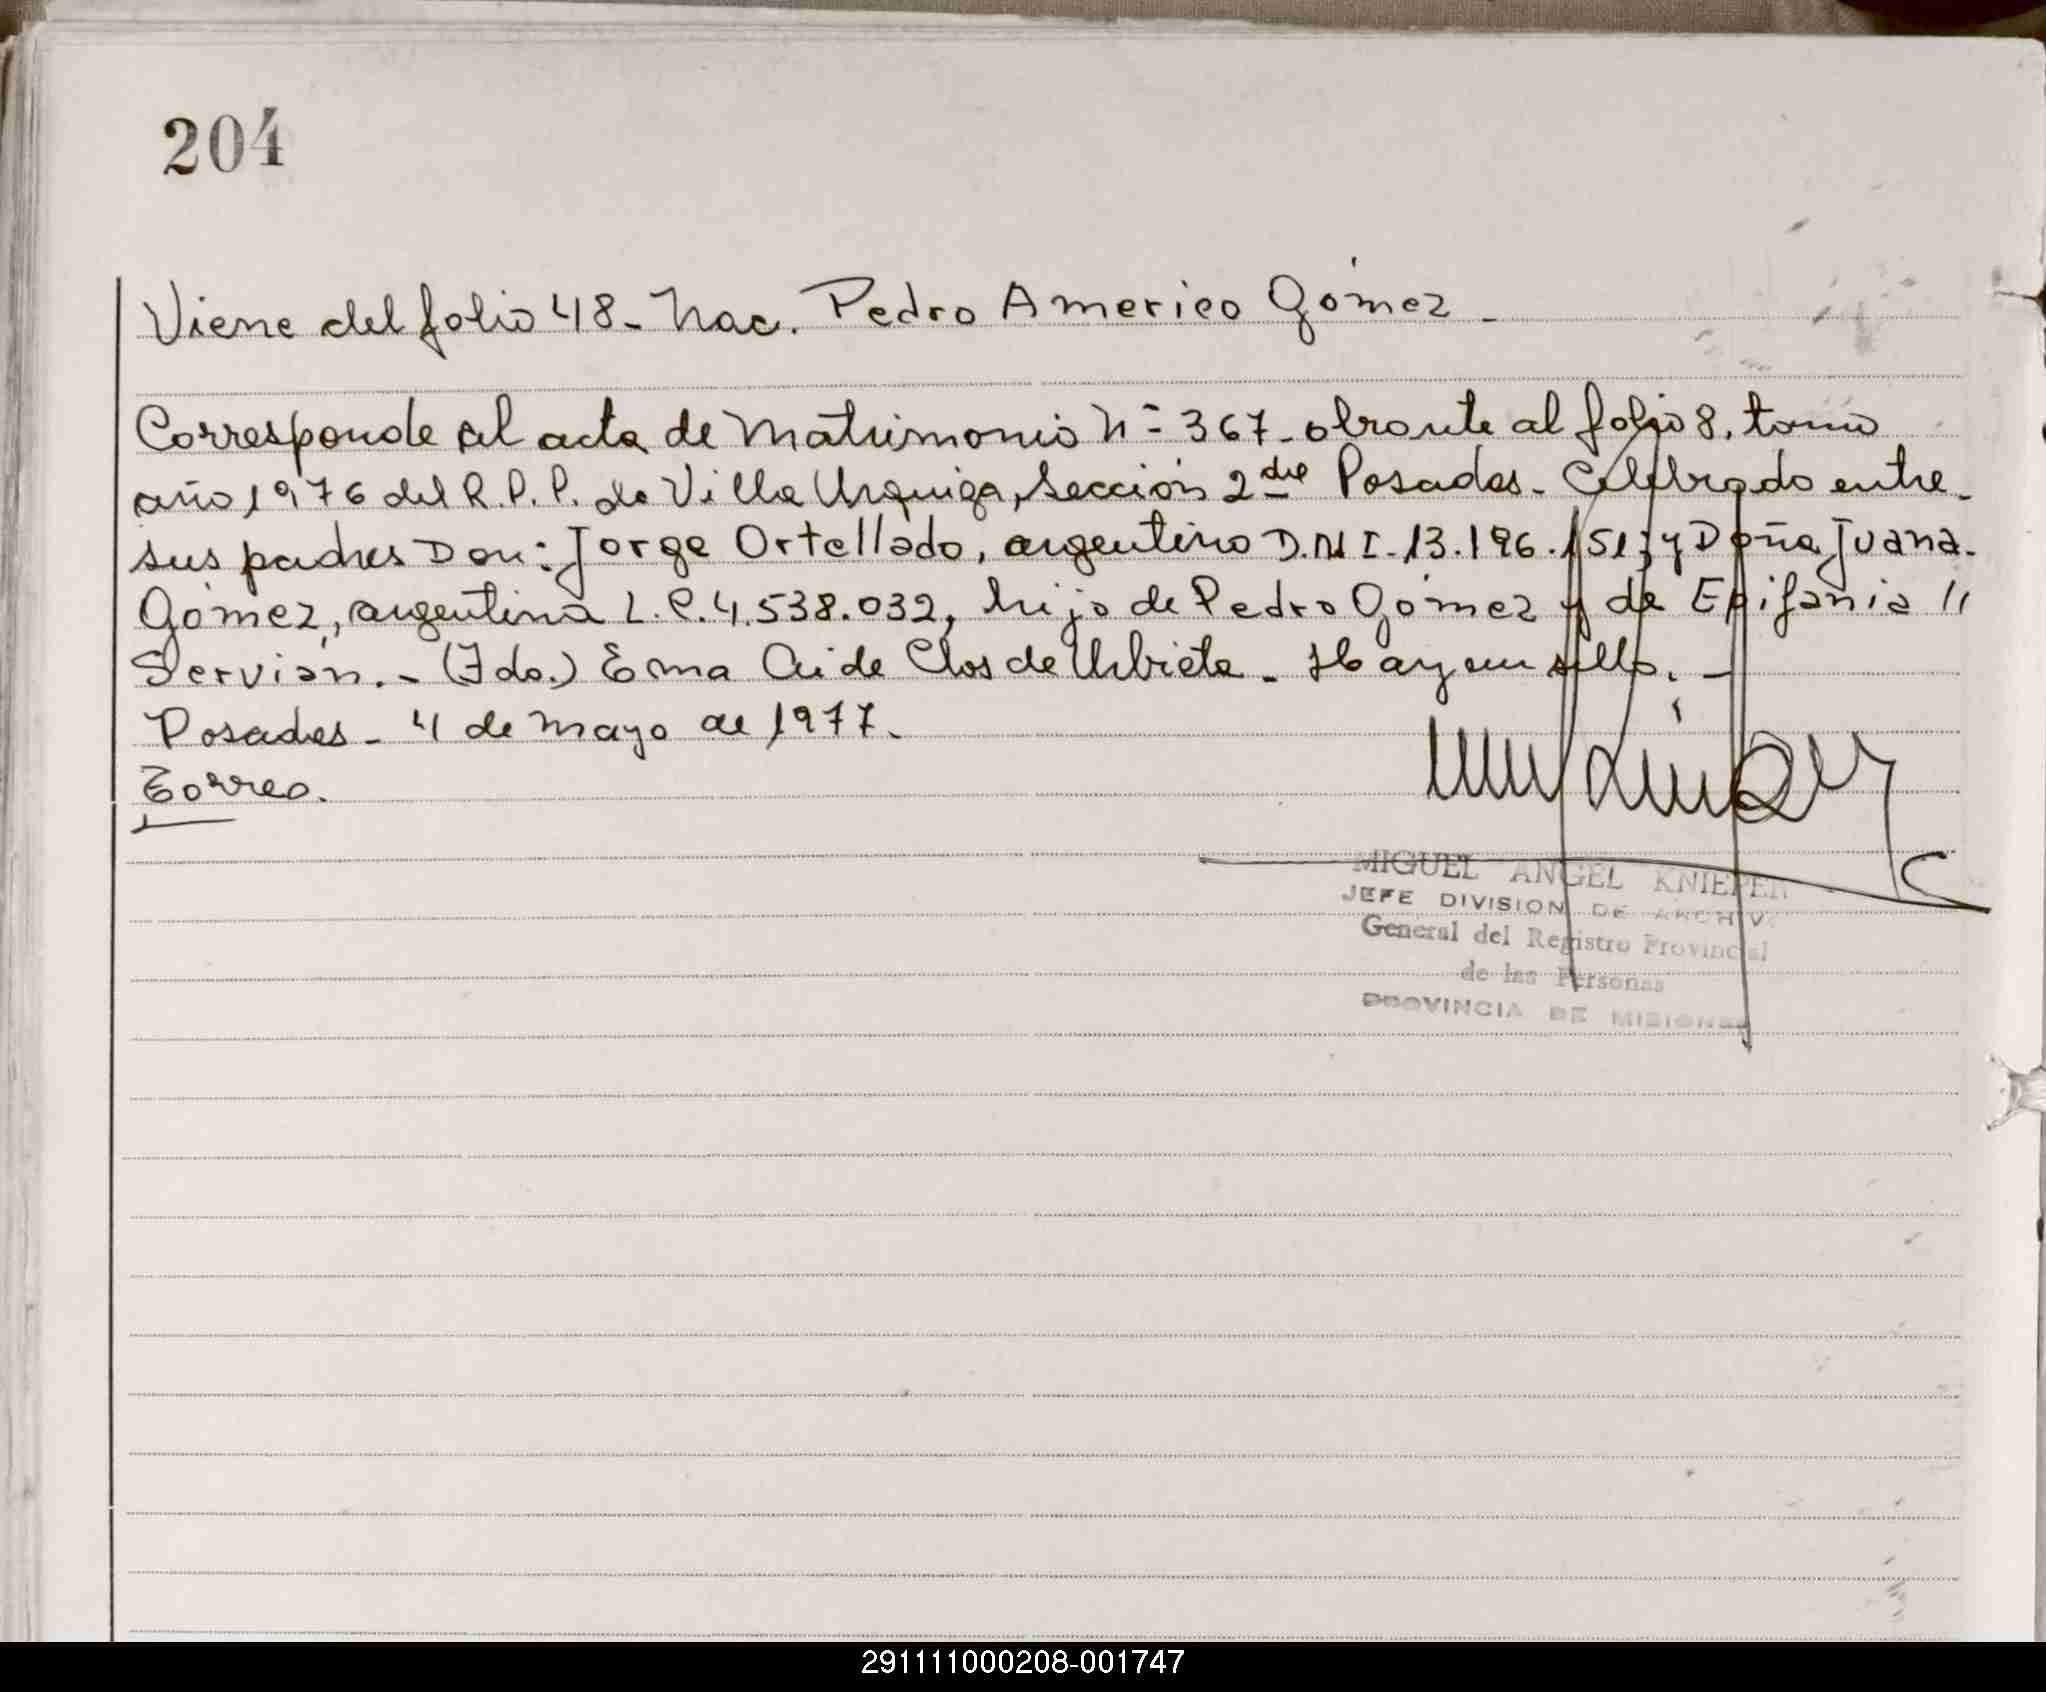 204
Viene del folio 48- Nac. Pedro Americo Gómez -
Corresponde al acta de Matrimonio Nº 367- obrante al folio 8, tomo
año 1976 del R.P.P. de Villa Urquiza, Sección 2da Posadas- Celebrado entre-
sus padres Don: Jorge Ortellado, argentino D.N.I. 13.196.151; y Doña Juana-
Gómez, argentina L.C. 4.538.032, hijo de Pedro Gómez y de Epifania //
Servián.- (Fdo.) Ema Aide Clos de Urbieta - Hay un sello. -
Posadas- 4 de Mayo de 1977-
MIGUEL ANGEL KNIEPER
JEFE DIVISION DE ARCHIV
General del Registro Provincial
de las Personas
PROVINCIA DE MISIONES
291111000208-001747